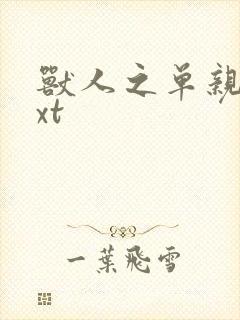 獸人之单親
xt
一葉飛雪